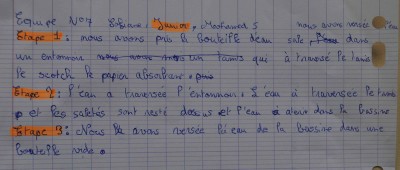 Equipe N°7 Sofiane, Junior, Mohamed S nous avons versée l'eau
Etape 1 : nous avons pris la bouteille d'eau sale, dans
un entonnoir un tamis qui à traversé le tamis
le scotch le papier absorbant.
Etape 2 : l'eau a traversée l'entonnoir. L'eau à traversée le tamis
et les saletés sont resté dessus et l'eau dans la bassine
Etape 3 : Nous avons versée l'eau de la bassine dans une
bouteille vide.